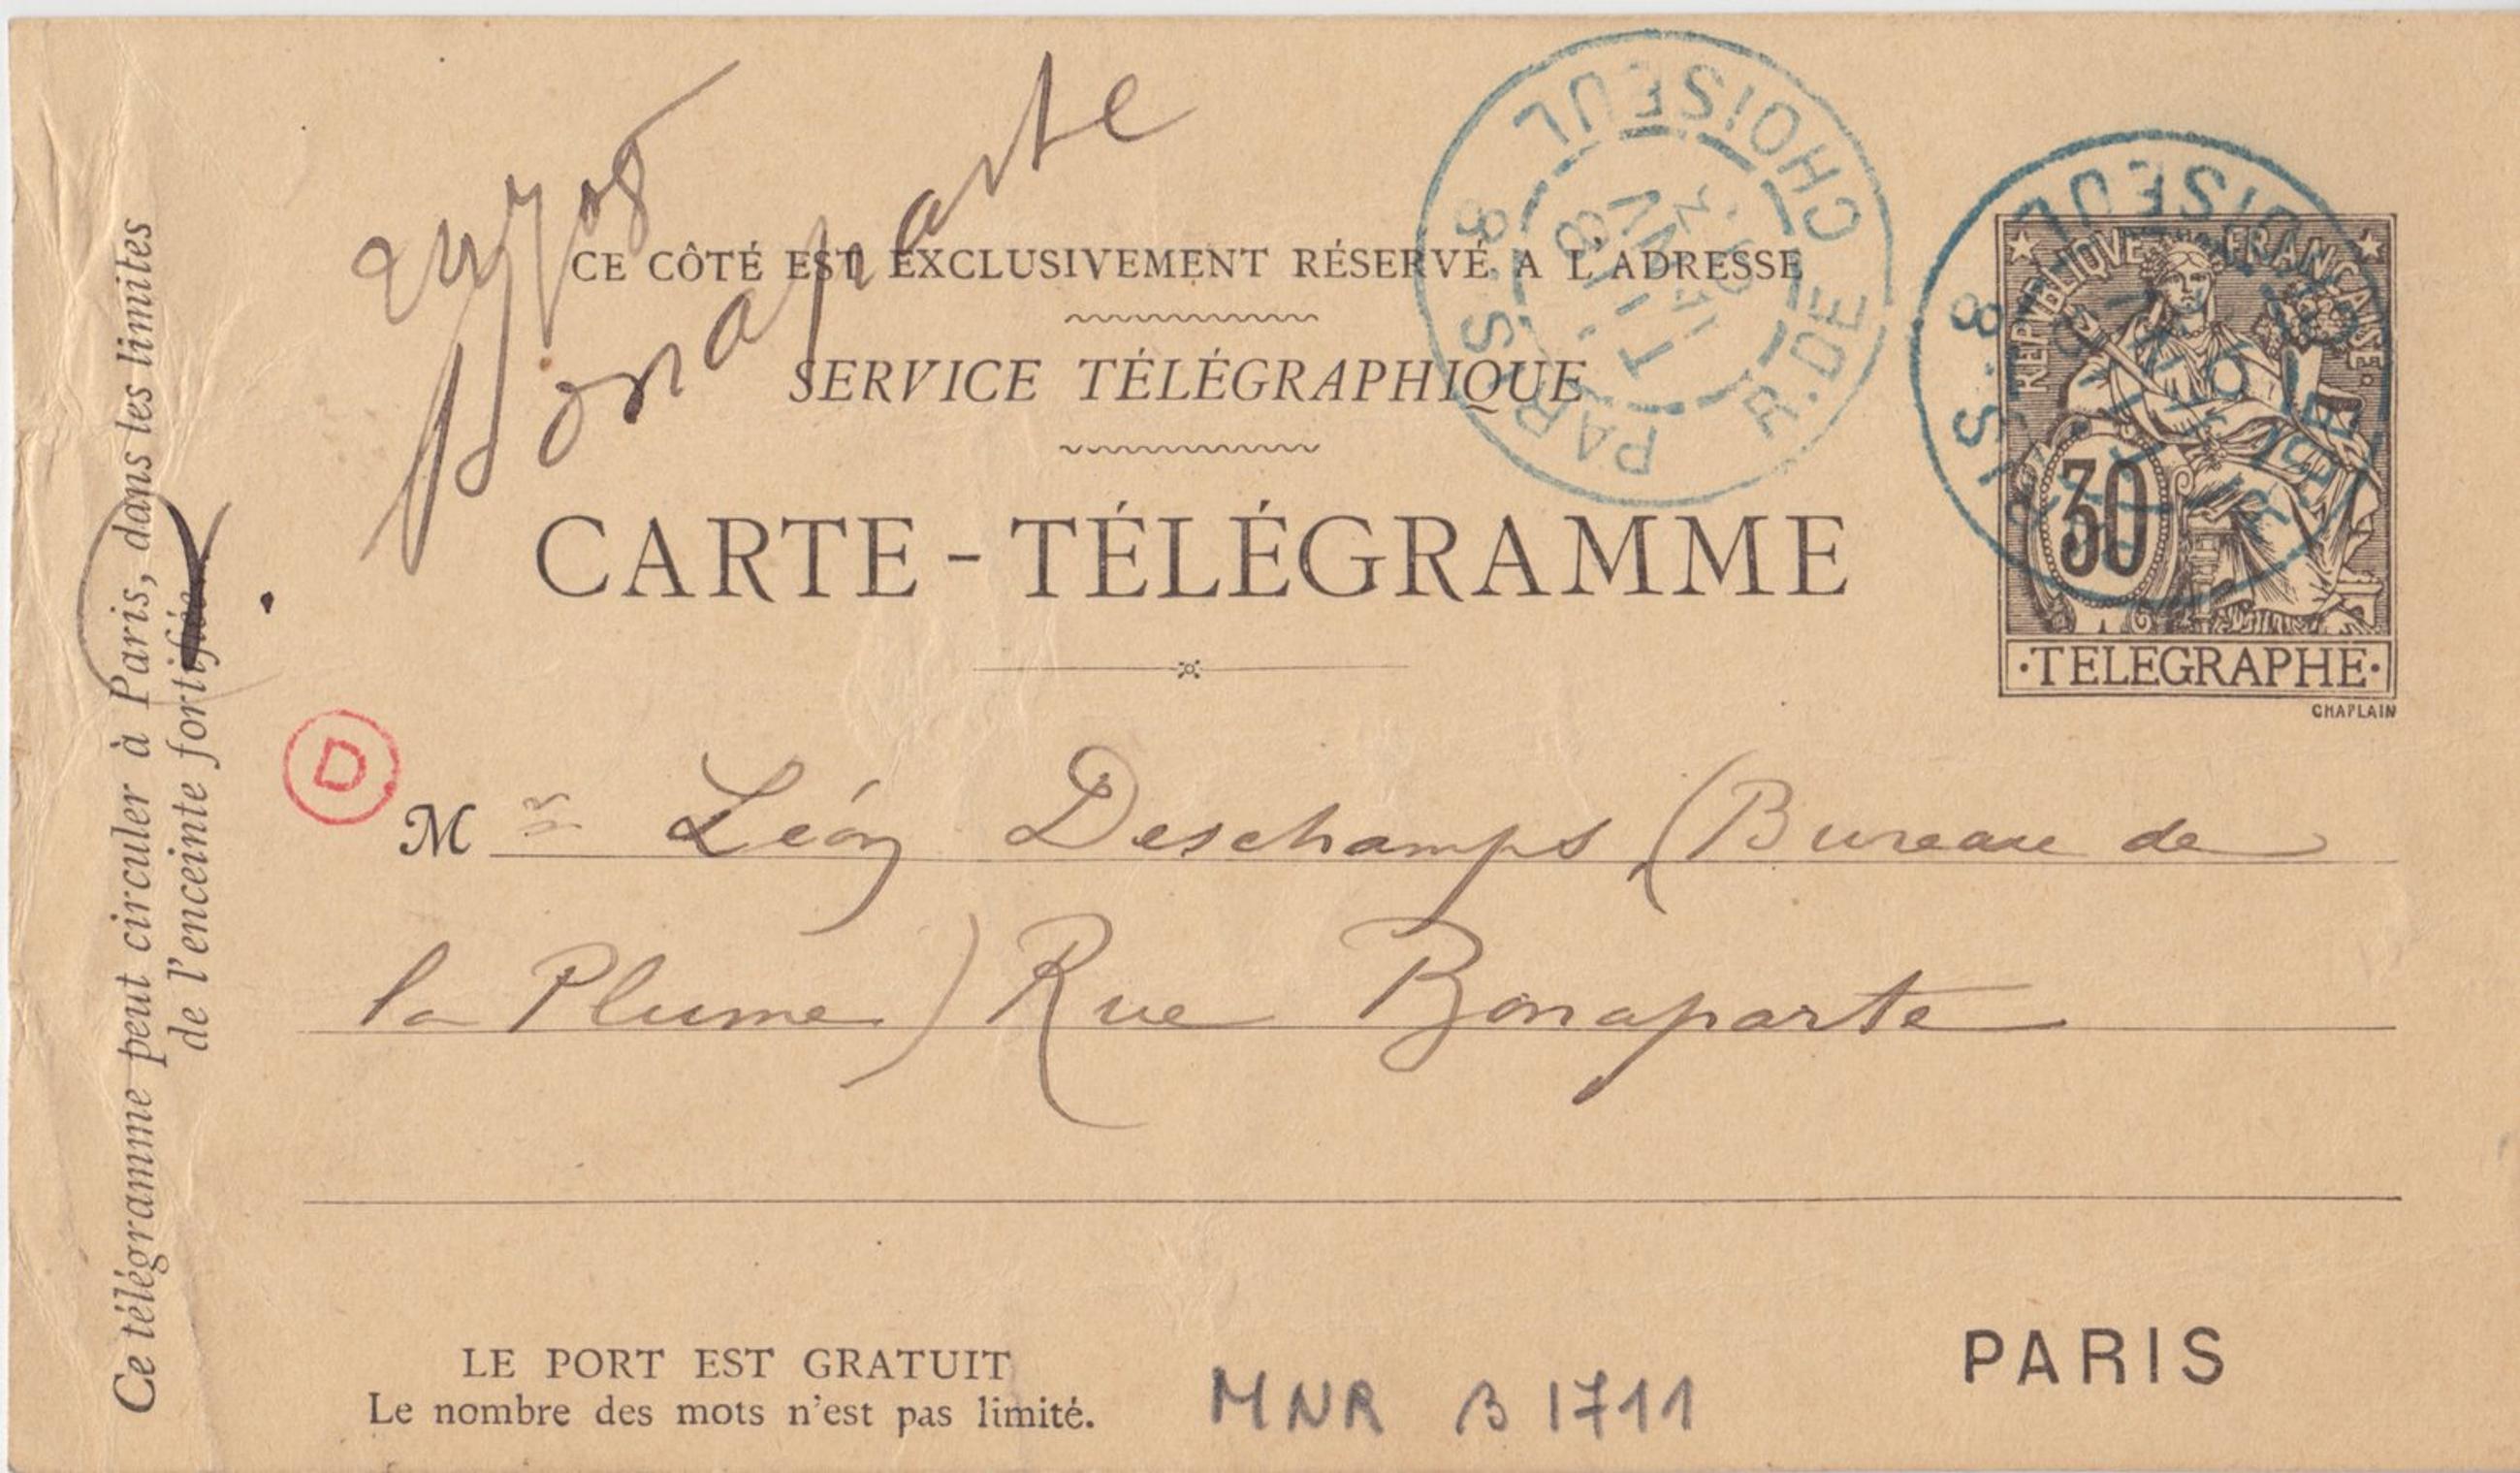 Bonaparte
CE CÔTÉ EST EXCLUSIVEMENT RÉSERVÉ A L'ADRESSE
SERVICE TÉLÉGRAPHIQUE
CARTE-TÉLÉGRAMME
PARIS 8 R. DE CHOISEUL
REPVBLIQVE FRANÇAISE
30
·TELEGRAPHE·
CHAPLAIN
Ce télégramme peut circuler à Paris, dans les limites
de l'enceinte fortifiée.
D
Mr Léon Deschamps (Bureau de
la Plume) Rue Bonaparte
LE PORT EST GRATUIT
Le nombre des mots n'est pas limité.
MNR B 1711
PARIS